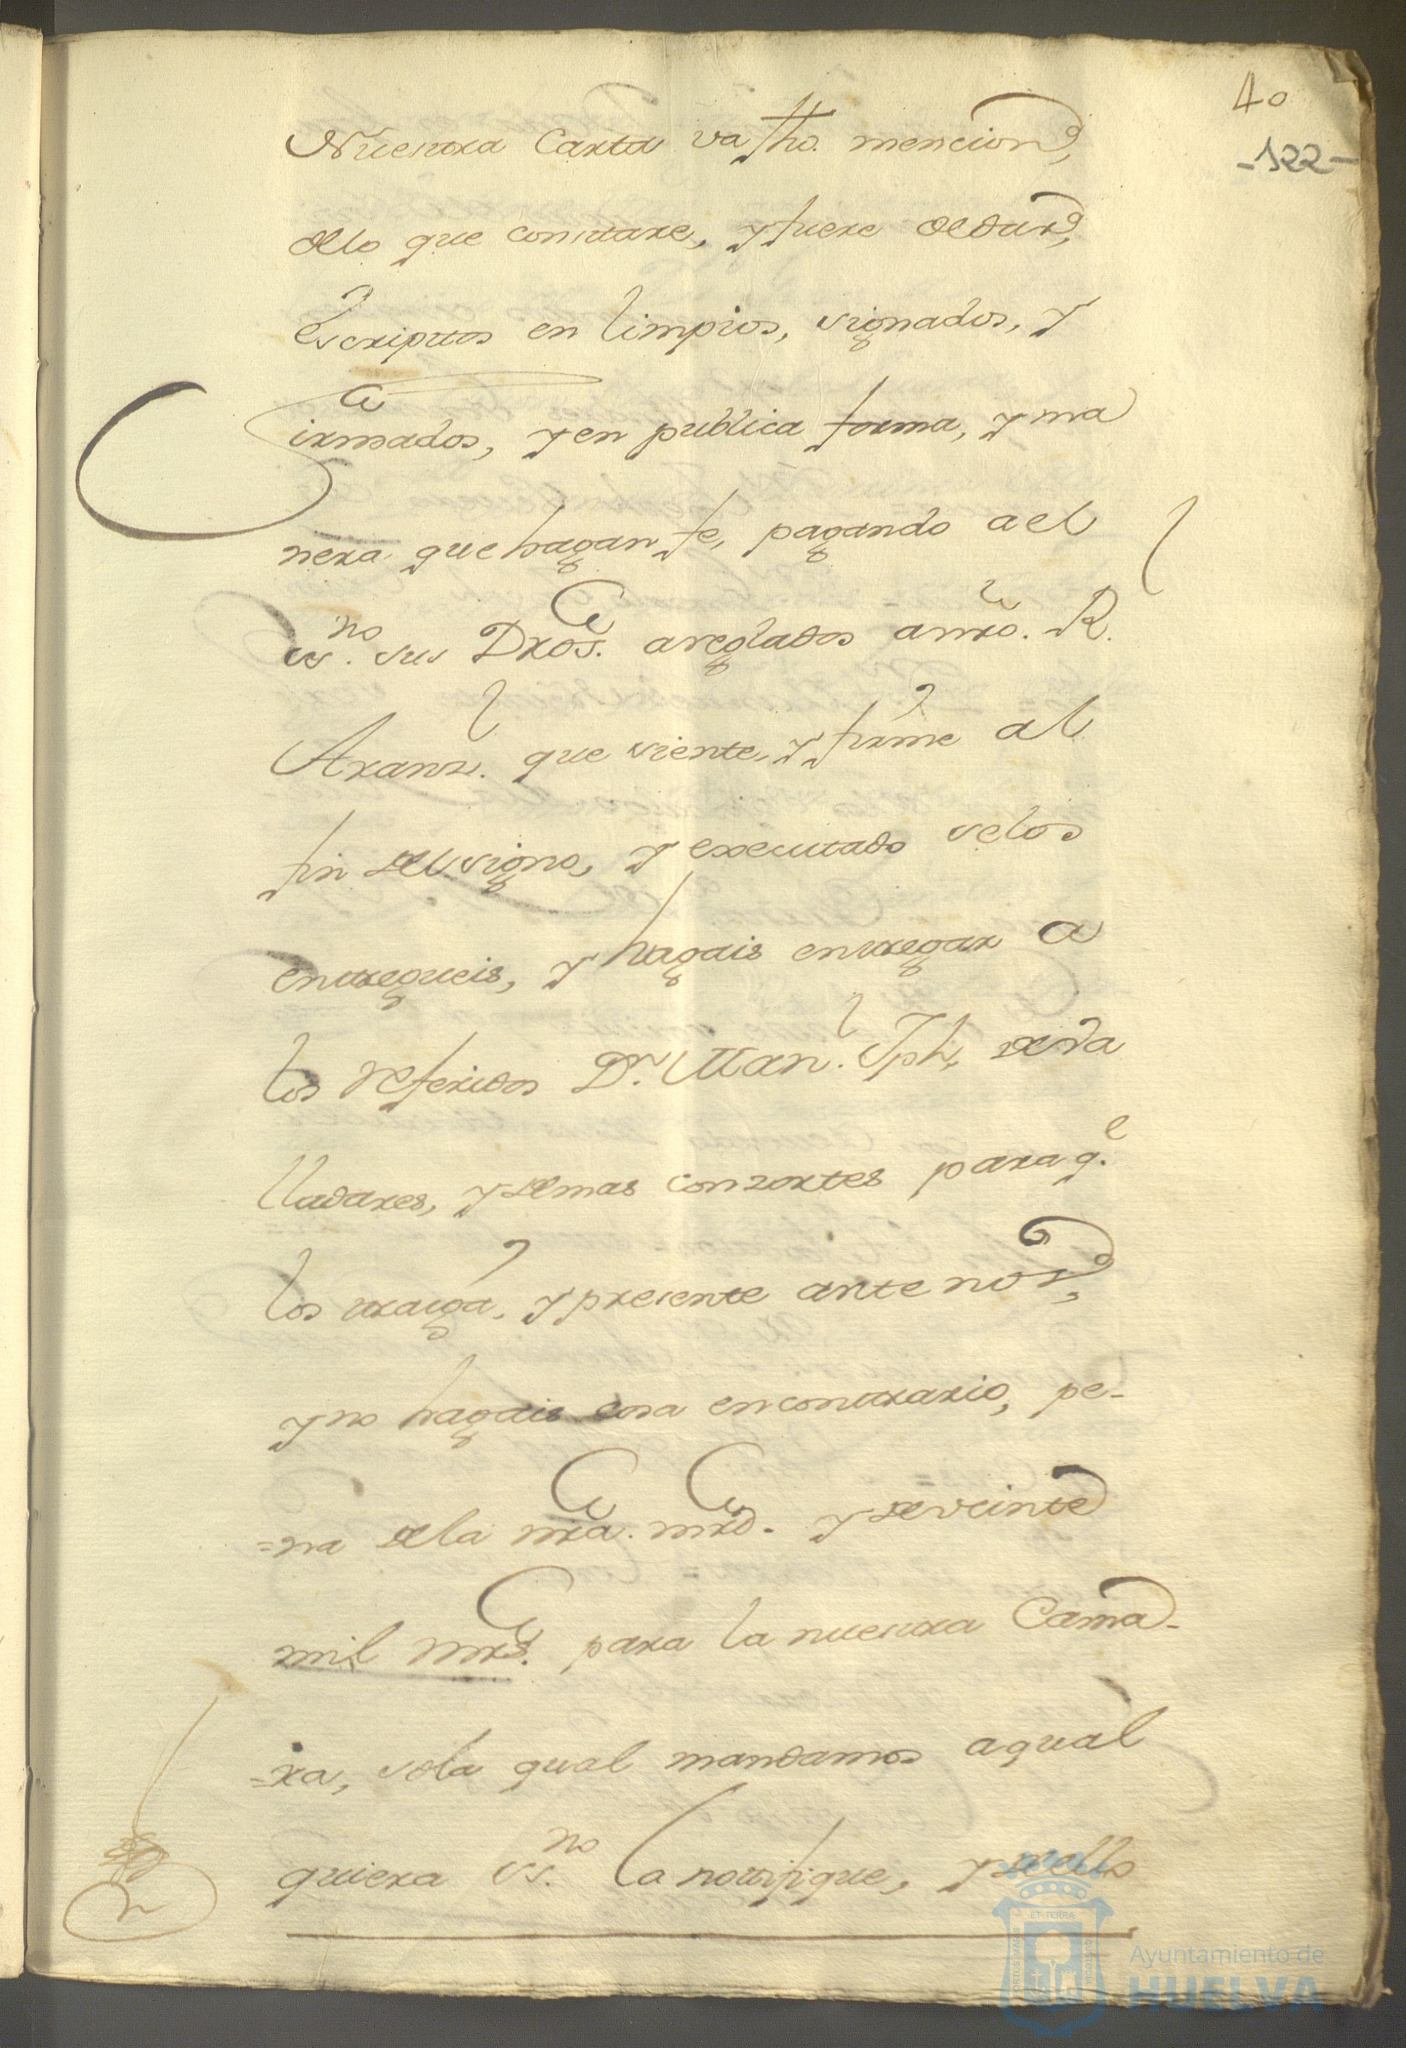 40
-122-
Nuestra Carta va fho. mencion,
dello que constare, y fuere dedar,
escriptos en limpios, signados, y
firmados, y en publica forma, y ma
nera que hagan fe, pagando a el
ss.no sus Dros. areglados a nro. R.
Aranzl. que siente, y firme al
fin del signo, y executado selos
entregueis, y hagais entregar a
los referidos Dn. Manl. Jph. de
lladares, y demas consortes para q.e
los traiga, y presente ante nos,
y no hagais cosa en contrario, pe-
=na de la nra. mrd. y de veinte
mil mrs. para la nuestra Cama-
=ra, so la qual mandamos a qual
quiera ss.no la notifique, y de ello
ET TERRA
Ayuntamiento de
HUELVA